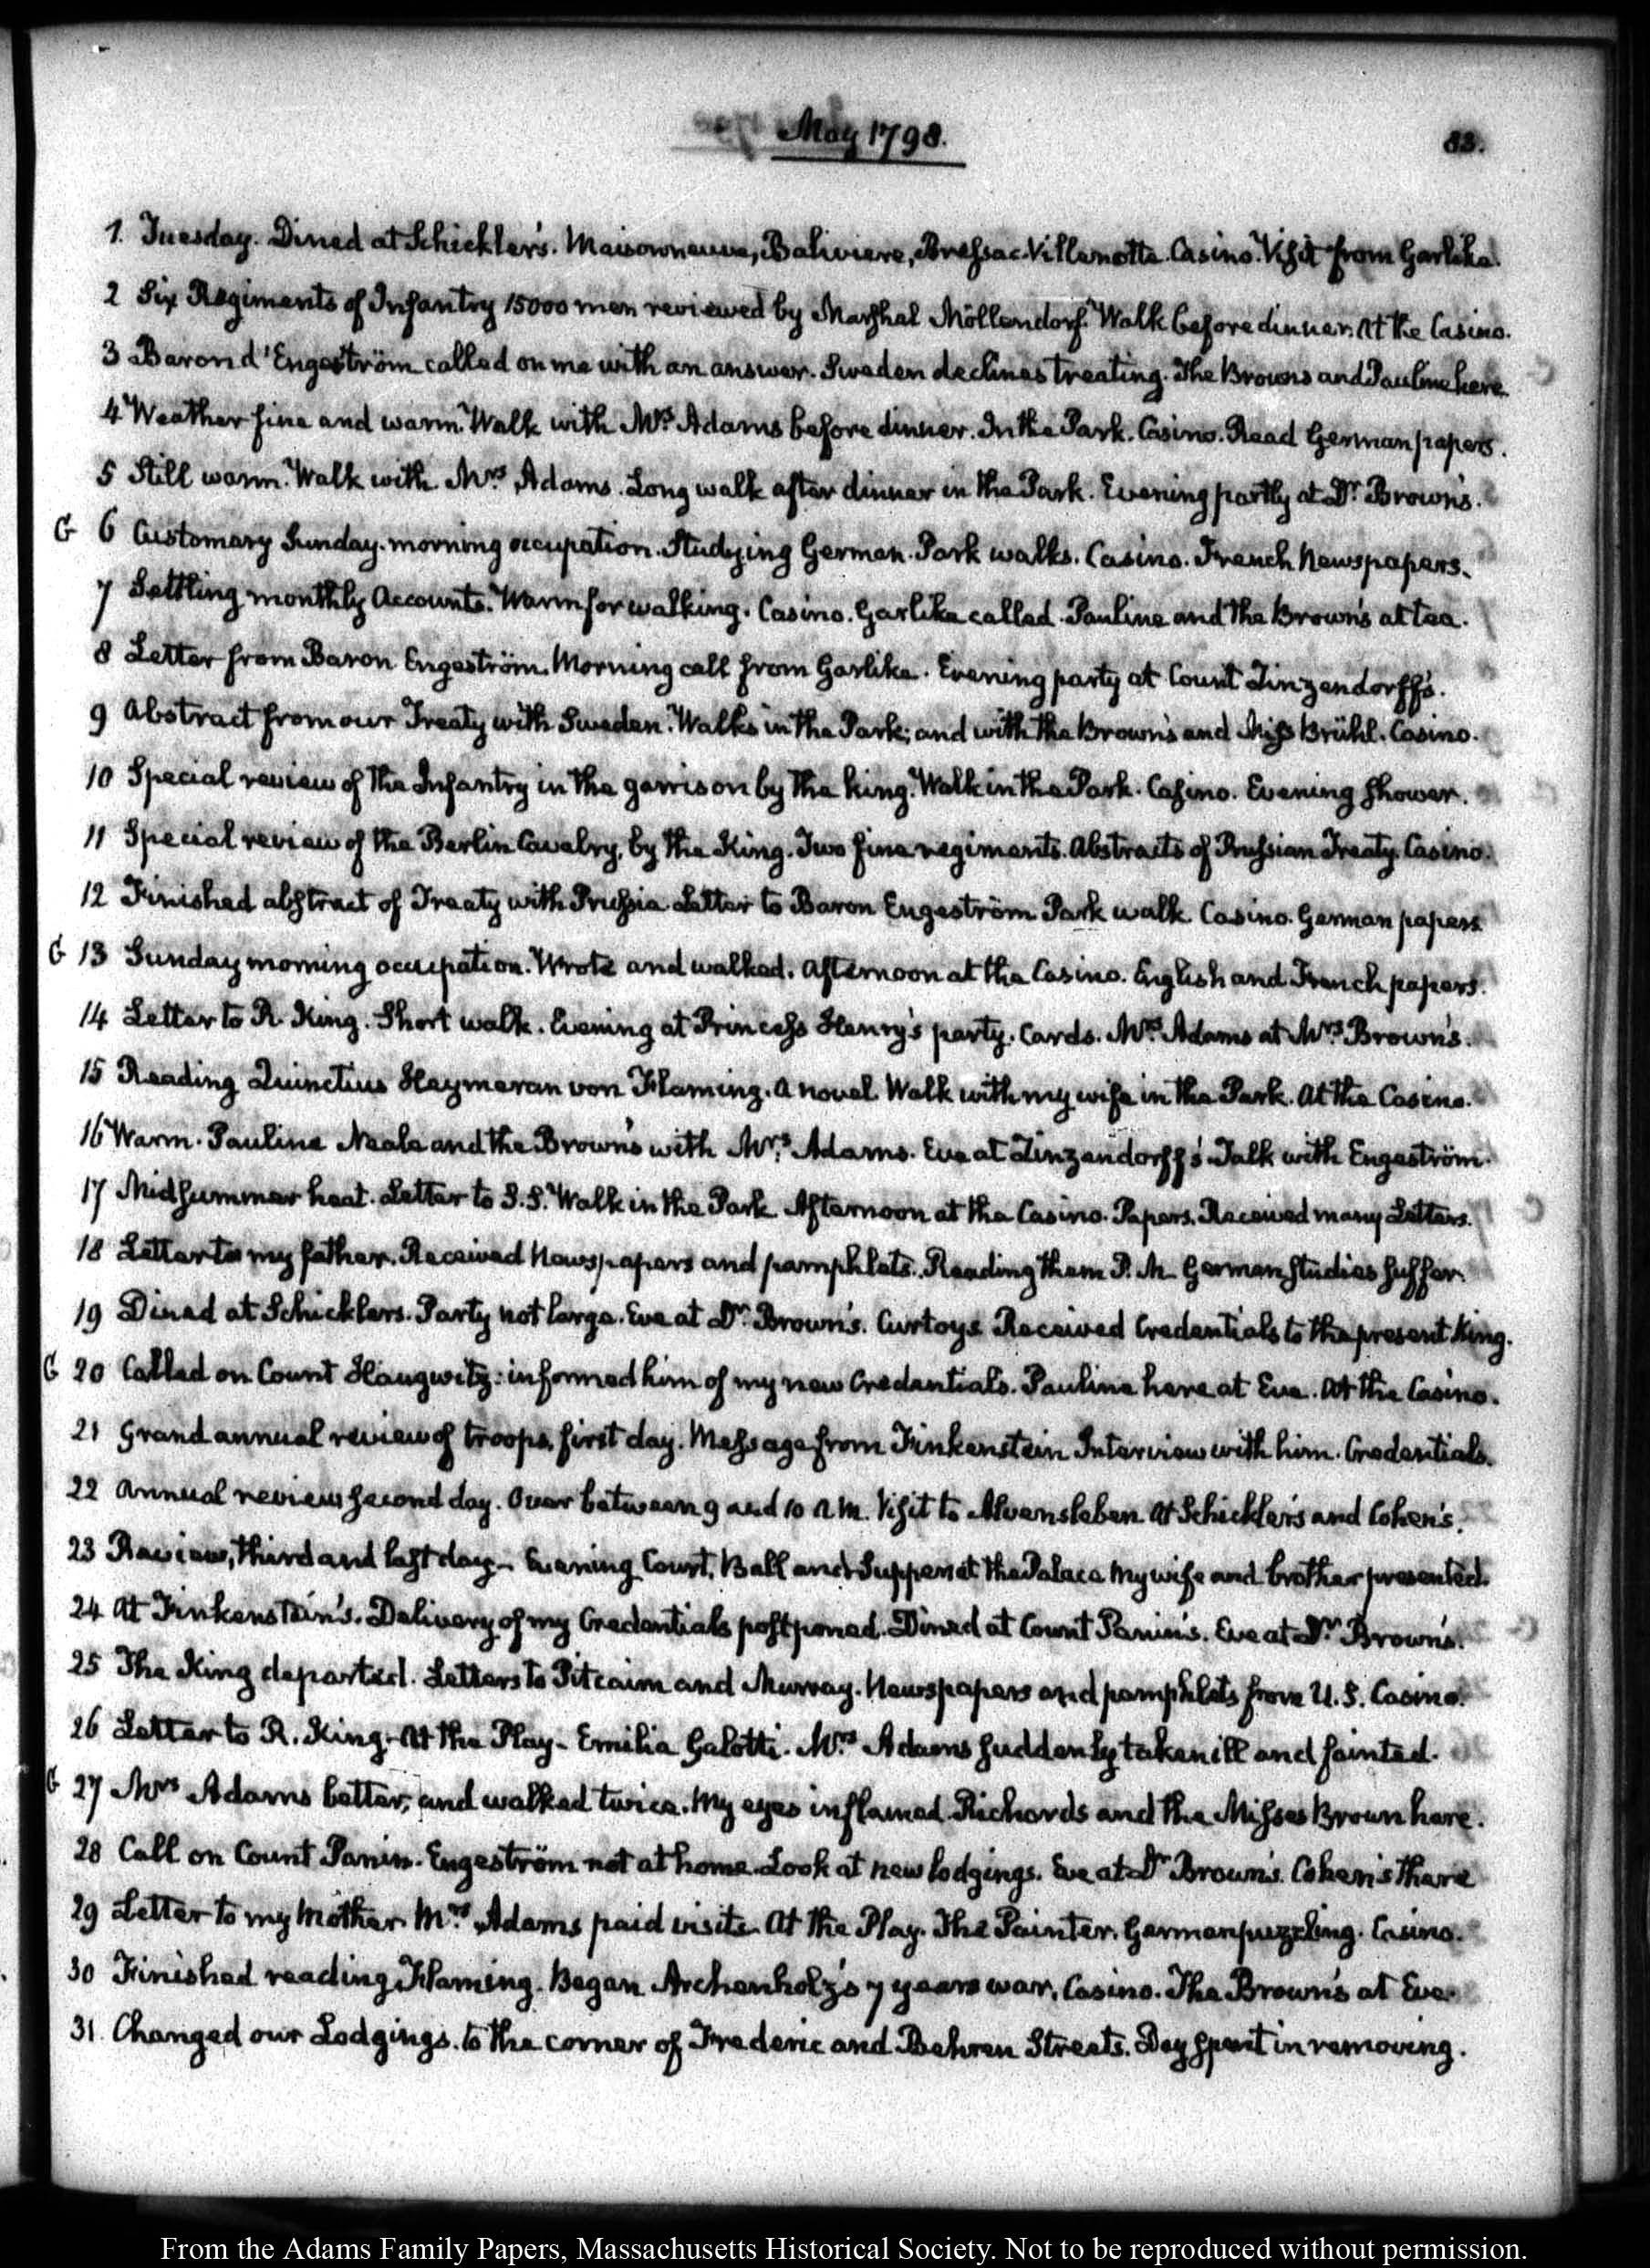 May 1798.
83.
1. Tuesday. Dined at Schickler's. Maisonneuve, Baliviere, Bressac. Villenotte. Casino. Visit from Garlike.
2 Six Regiments of Infantry 15000 men reviewed by Marshal Möllendorf. Walk before dinner. At the Casino.
3 Baron d'Engeström called on me with an answer. Sweden declines treating. The Browns and Pauline here
4 Weather fine and warm. Walk with Mrs Adams before dinner. In the Park. Casino. Read German papers.
5 Still warm. Walk with Mrs Adams. Long walk after dinner in the Park. Evening partly at Dr Brown's.
G 6 Customary Sunday morning occupation. Studying German. Park walks. Casino. French Newspapers.
7 Settling monthly Accounts. Warm for walking. Casino. Garlike called. Pauline and the Brown's at tea.
8 Letter from Baron Engeström. Morning call from Garlike. Evening party at Count Zinzendorff's.
9 Abstract from our Treaty with Sweden. Walks in the Park; and with the Brown's and Miss Brühl. Casino.
10 Special review of the Infantry in the garrison by the king. Walk in the Park. Casino. Evening shower.
11 Special review of the Berlin Cavalry, by the King. Two fine regiments. Abstracts of Prussian Treaty. Casino.
12 Finished abstract of Treaty with Prussia. Letter to Baron Engeström Park walk. Casino. German papers
G 13 Sunday morning occupation. Wrote and walked. Afternoon at the Casino. English and French papers.
14 Letter to R. King. Short walk. Evening at Princess Henry's party. Cards. Mrs Adams at Mrs Brown's.
15 Reading Quinctius Heymeran von Flaming. A novel. Walk with my wife in the Park. At the Casino.
16 Warm. Pauline Neale and the Brown's with Mrs Adams. Eve at Zinzendorff's. Talk with Engeström.
17 Midsummer heat. Letter to S.S. Walk in the Park Afternoon at the Casino. Papers. Received many Letters.
18 Letter to my father. Received Newspapers and pamphlets. Reading them P. M. German studies suffer.
19 Dined at Schicklers. Party not large. Eve at Dr. Brown's. Curtoys Received Credentials to the present King.
G 20 Called on Count Haugwitz: informed him of my new Credentials. Pauline here at Eve. At the Casino.
21 Grand annual review of troops, first day. Message from Finkenstein Interview with him. Credentials.
22 Annual review second day. Over between 9 and 10 A.M. Visit to Alvensleben. At Schickler's and Cohen's.
23 Review, third and last day. Evening Court, Ball and Supper at the Palace My wife and brother presented.
24 At Finkenstein's. Delivery of my Credentials postponed. Dined at Count Panin's. Eve at Dr Brown's.
25 The King departed. Letters to Pitcairn and Murray. Newspapers and pamphlets from U.S. Casino.
26 Letter to R. King. At the Play. Emilia Galotti. Mrs Adams suddenly taken ill and fainted.
G 27 Mrs Adams better; and walked twice. My eyes inflamed. Richards and the Misses Brown here.
28 Call on Count Panin. Engeström not at home. Look at new lodgings. Eve at Dr Brown's. Cohen's there
29 Letter to my Mother. Mrs Adams paid visits. At the Play. The Painter. German puzzling. Casino.
30 Finished reading Flaming. Began Archenholz's 7 years war. Casino. The Brown's at Eve.
31. Changed our Lodgings. to the corner of Frederic and Behren Streets. Day spent in removing.
From the Adams Family Papers, Massachusetts Historical Society. Not to be reproduced without permission.